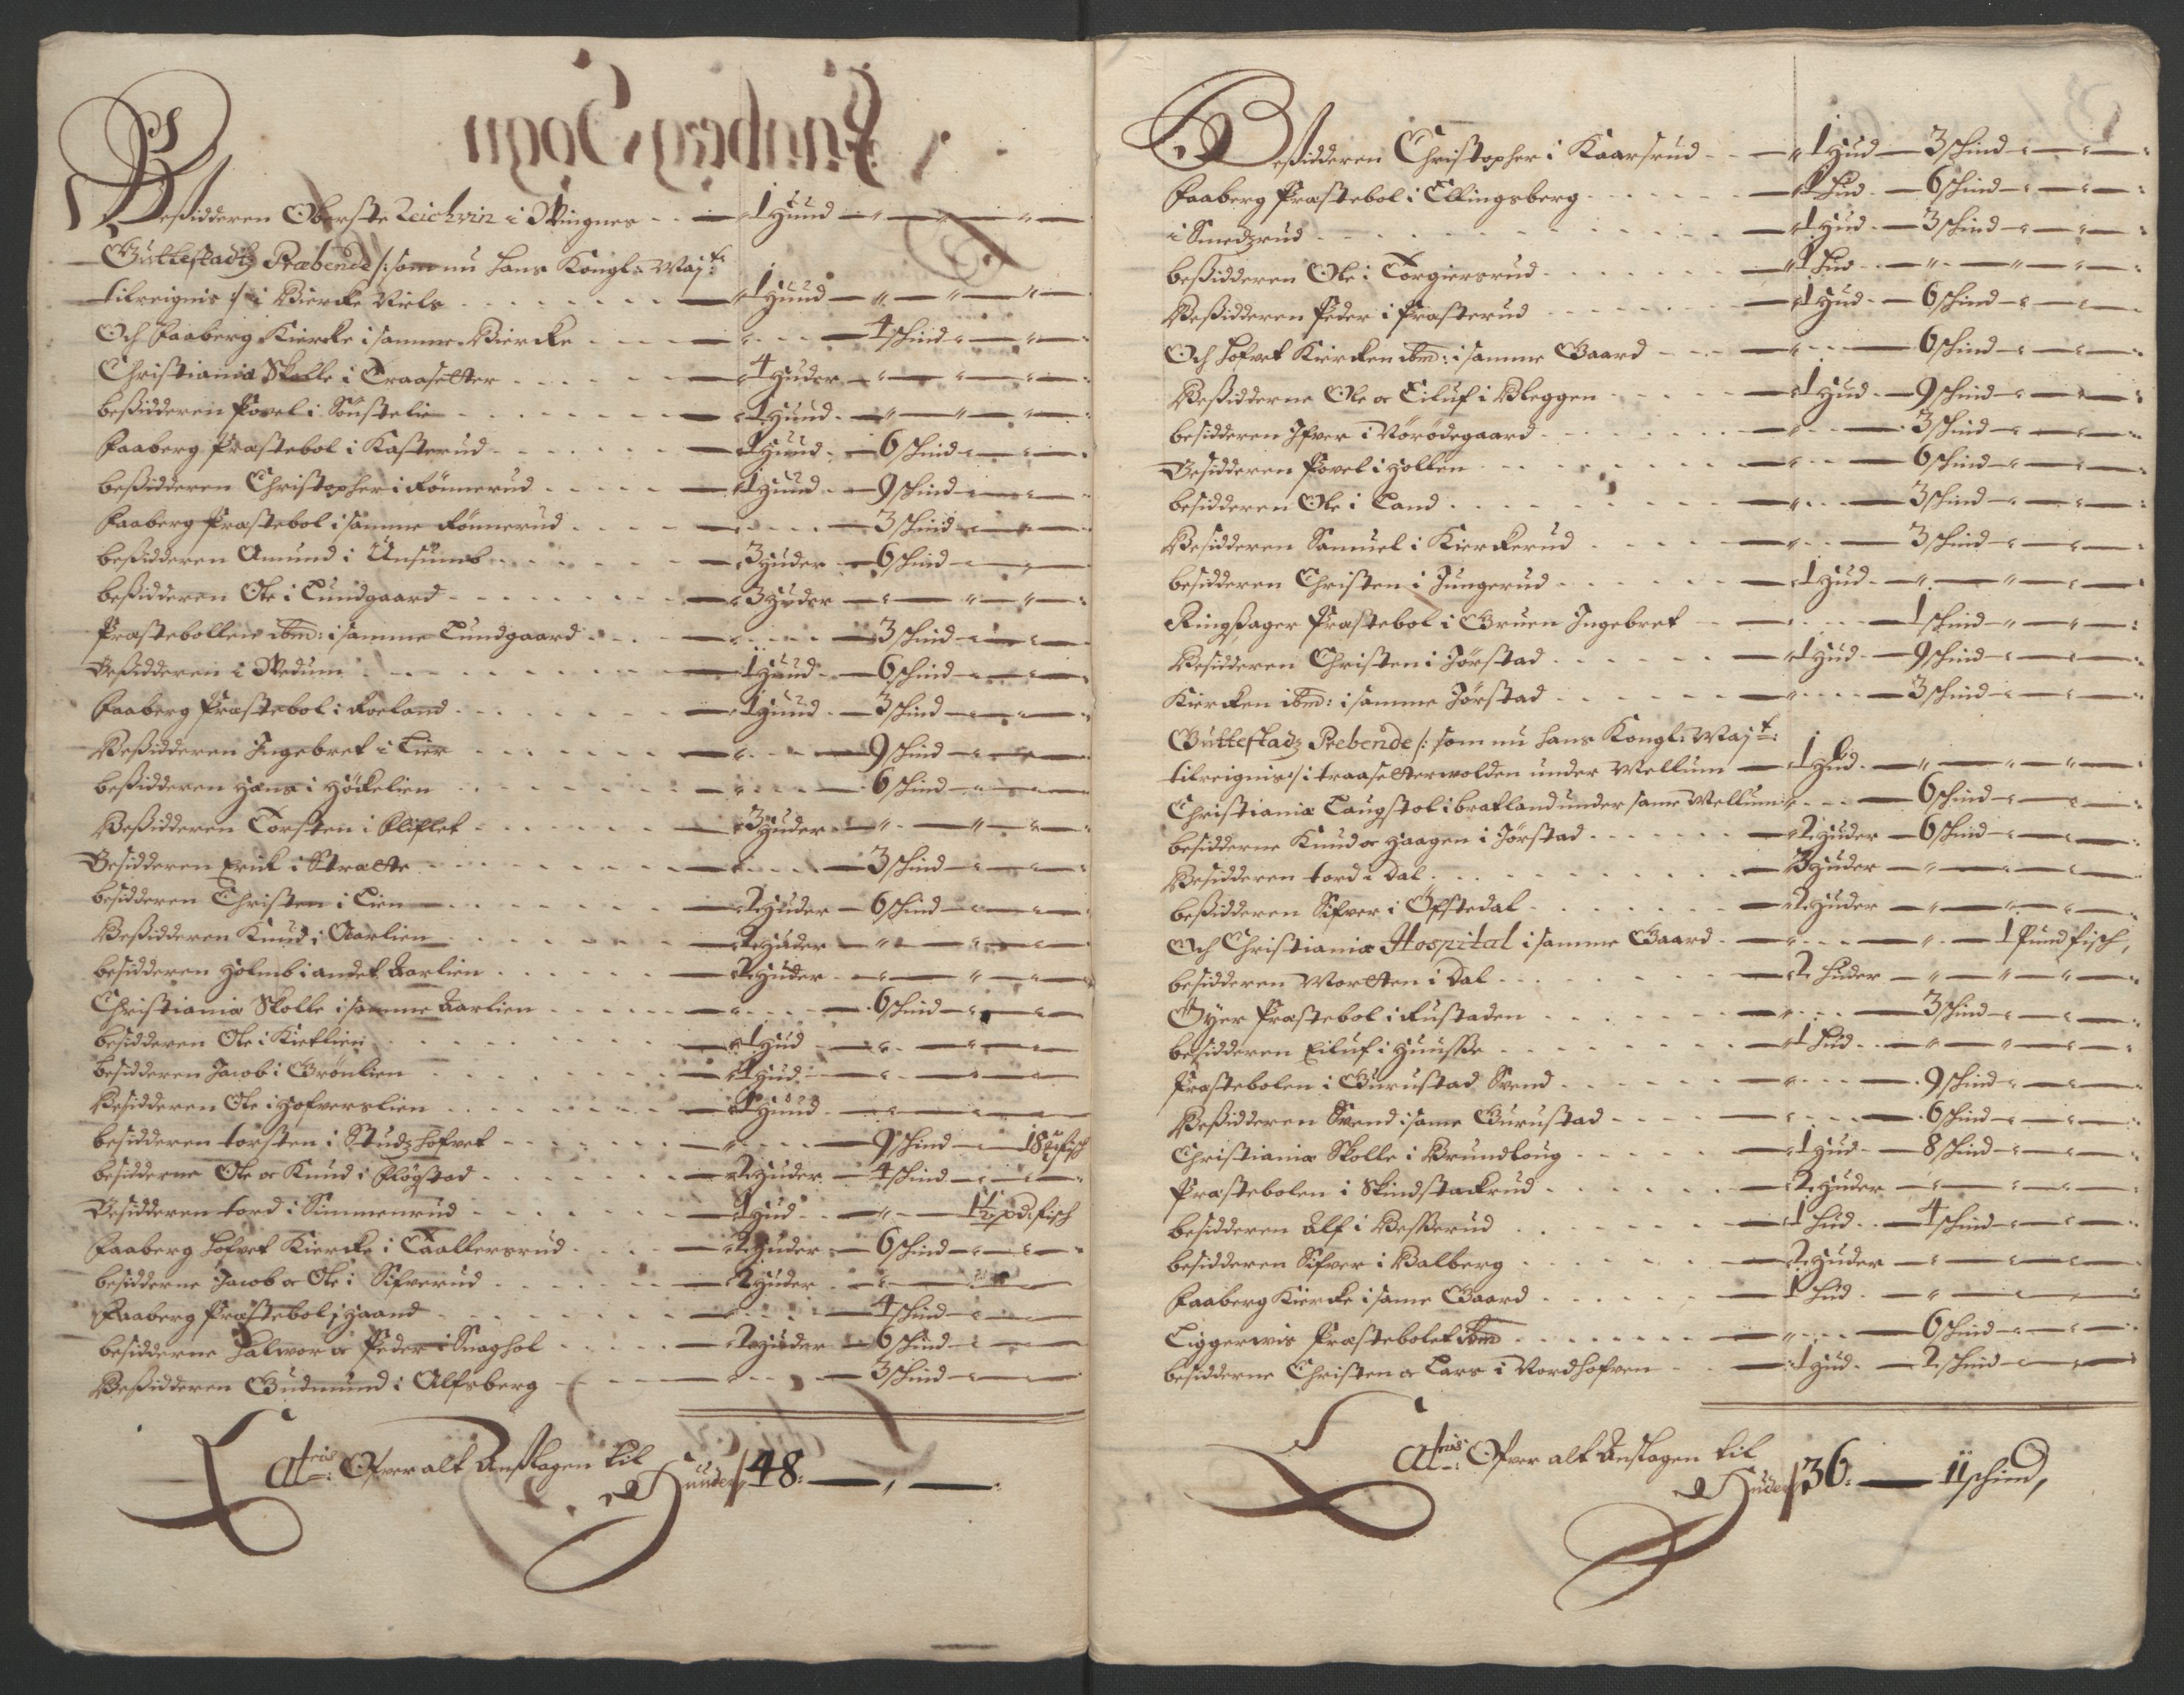 Beßidderen Oberste Reichvin i Wingnes - - 1 Huud - " - " - " -
Guttestadtz Præbende /: som nu hans Kongl: Maj:t
tilreignis :/ i Biercke Niels - - 1 Huud - " - " - " -
Och Faaberg Kiercke i samme Biercke - - 4 schind - " - " -
Christiania Skolle i Traasetter - - 4 Huder - " - " - " -
beßidderen Povel i Sönstelie - - 1 Huud - " - " - " -
Faaberg Præstebol i Kasterud - - 1 Huud - 6 schind - " -
beßidderen Christopher i Rönnerud - - 1 Huud - 9 schind - " -
Faaberg Præstebol i samme Rönnerud - - 3 schind - " -
beßidderen Amund i Unsumb - - 3 Huder - 6 schind - " -
beßidderen Ole i Lundgaard - - 3 Huder - " - " - " -
Præstebollen ibm: i samme Lundgaard - - 3 schind - " -
Beßidderen i Wedum - - 1 Huud - 6 schind - " -
Faaberg Præstebol i Roeland - - 1 Huud - 3 schind - " -
Beßidderen Ingebret i Lier - - 9 schind - " -
beßidderen Hans i Höckelien - - 6 schind - " -
Beßidderen Torsten i Kliflet - - 3 Huder - " - " - " -
Besidderen Erik i Strætte - - 3 schind - " -
besidderen Christen i Lien - - 2 Huder - 6 schind - " -
Beßidderen Knud i Aarlien - - 2 Huder - " - " -
besidderen Holmb i andet Aarlien - - 2 Huder - " - " -
Christianiæ Skolle i samme Aarlien - - 6 schind - " -
besidderen Ole i Kietlien - - 1 Hud - " - " -
besidderen Jacob i Grönlien - - 1 Hud - " - " -
Besidderen Ole i Hofverslien - - 1 Huud - " - " -
besidderen torsten i Studzhofvet - - 9 schind - 18 fisch
besidderne Ole oc Knud i Flögstad - - 2 Huder - 4 schind - " -
Besidderen tord i Simmenrud - - 1 Hud - " - 1½ pd: fisch
Faaberg hofvet Kiercke i Taallersrud - - 2 Huder - 6 schind - " -
besidderne Jacob oc Ole i Sifverud - - 2 Huder - " - " -
Faaberg Præstebol i Haand - - 4 schind - " -
besidderne Halvor oc Peder i Snaghol - - 2 Huder - 6 schind - " -
Beßidderen Gudmund i Alfsberg - - 3 schind - " -
Latris: Ofver alt Anslagen til
Huuder 48: - , -
Beßidderen Christopher i Kaarsrud - - 1 Hud - 3 schind - " -
Faaberg Præstebol i Ellingsberg - - 1 Hud - 6 schind - " -
i Smedzrud - - 1 Hud - 3 schind - " -
beßidderen Ole i Torgiersrud - - 1 Hud - " - " -
Beßidderen Peder i Præsterud - - 1 Hud - 6 schind - " -
Och hofvet Kiercken ibm: i samme Gaard - - 6 schind - " -
Beßidderne Ole oc Eiluf i Kleggen - - 1 Hud - 9 schind - " -
besidderen Ifver i Nörödegaard - - 3 schind - " -
Besidderen Povel i Hollen - - 6 schind - " -
besidderen Ole i Land - - 3 schind - " -
Besidderen Samuel i Kierkerud - - 3 schind - " -
besidderen Christen i Jungerud - - 1 Hud - " - " -
Ringsager Præstebol i Gruen Ingebret - - 1 schind - " -
Besidderen Christen i Jørstad - - 1 Hud - 9 schind - " -
Kiercken ibm: i samme Jørstad - - 3 schind - " -
Guttestadz Prebende /: som nu hans Kongl: Maj:t
tilreignis :/ i traasetterwolden under Mellum - 1 Hud - " - " -
Christianiæ Laugstol i bratland under same Mellum - 6 schind - " -
besidderne Knud oc Haagen i Jørstad - - 2 Huder - 6 schind - " -
Besidderen tord i Dal - - 3 Huder - " - " -
beßidderen Sifver i Öfstedal - - 2 Huder - " - " -
Och Christianiæ Hospital i samme Gaard - - " - 1 Pund fisch,
besidderen Morten i Dal - - 2 Huder - " - " -
Öyer Præstebol i Rustaden - - 3 schind - " -
besidderen Eiluf i Huusße - - 1 Hud - " - " -
Præstebolen i Gurustad Svend - - 9 schind - " -
Beßidderen Svend i same Gurustad - - 6 schind - " -
Christianiæ Skolle i Brundloug - - 1 Hud - 8 schind - " -
Præstebolen i Skindstackrud - - 2 Huder - " - " -
besidderen Alf i Besserud - - 1 Hud - 4 schind - " -
besidderen Sifver i Balberg - - 2 Huder - " - " -
Faaberg Kiercke i same Gaard - - 1 Hud - " - " -
Liggerwis Præstebolet ibm - - 6 schind - " -
besidderne Christen oc Lars i Nordhofven - - 1 Hud - 2 schind - " -
Latris: Ofver alt Anslagen til
Huder 36: - 11 schind,